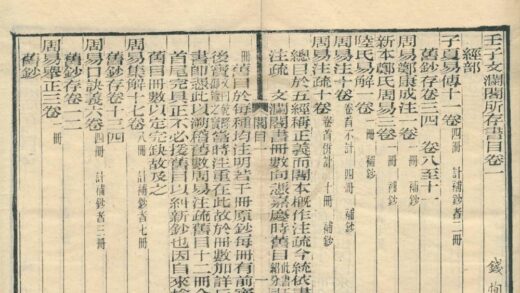 壬子文瀾閣所存書目卷一
經部 錢恂
子夏易傳十一卷 四冊 計補鈔者二冊
舊鈔存卷三四 卷八至十一
周易鄭康成注一卷 一冊 補鈔
新本鄭氏周易三卷 一冊 補鈔
陸氏易解一卷 一冊 補鈔
周易注十卷 卷首不計 四冊 補鈔
周易注疏十卷 卷首併計 十冊 補鈔
總目於五經稱正義而閣本概作注疏今統依書
注疏 文瀾閣書冊數向憑嘉慶時舊目
冊舊目於每種均注明若干冊原鈔每冊有前
閣目 一
後寶當時注重在此故於冊數加詳
書師憑此以溯舊數周易注疏舊目十二冊
首尾完具正不必復舊目以糾新鈔也因自來檢
舊目冊數以定完缺故及之
周易集解十七卷 冊 計補鈔者七冊
舊鈔存卷十三四
周易口訣義六卷 四冊 計補鈔者三冊
舊鈔存卷一二
周易舉正三卷 一冊
舊鈔